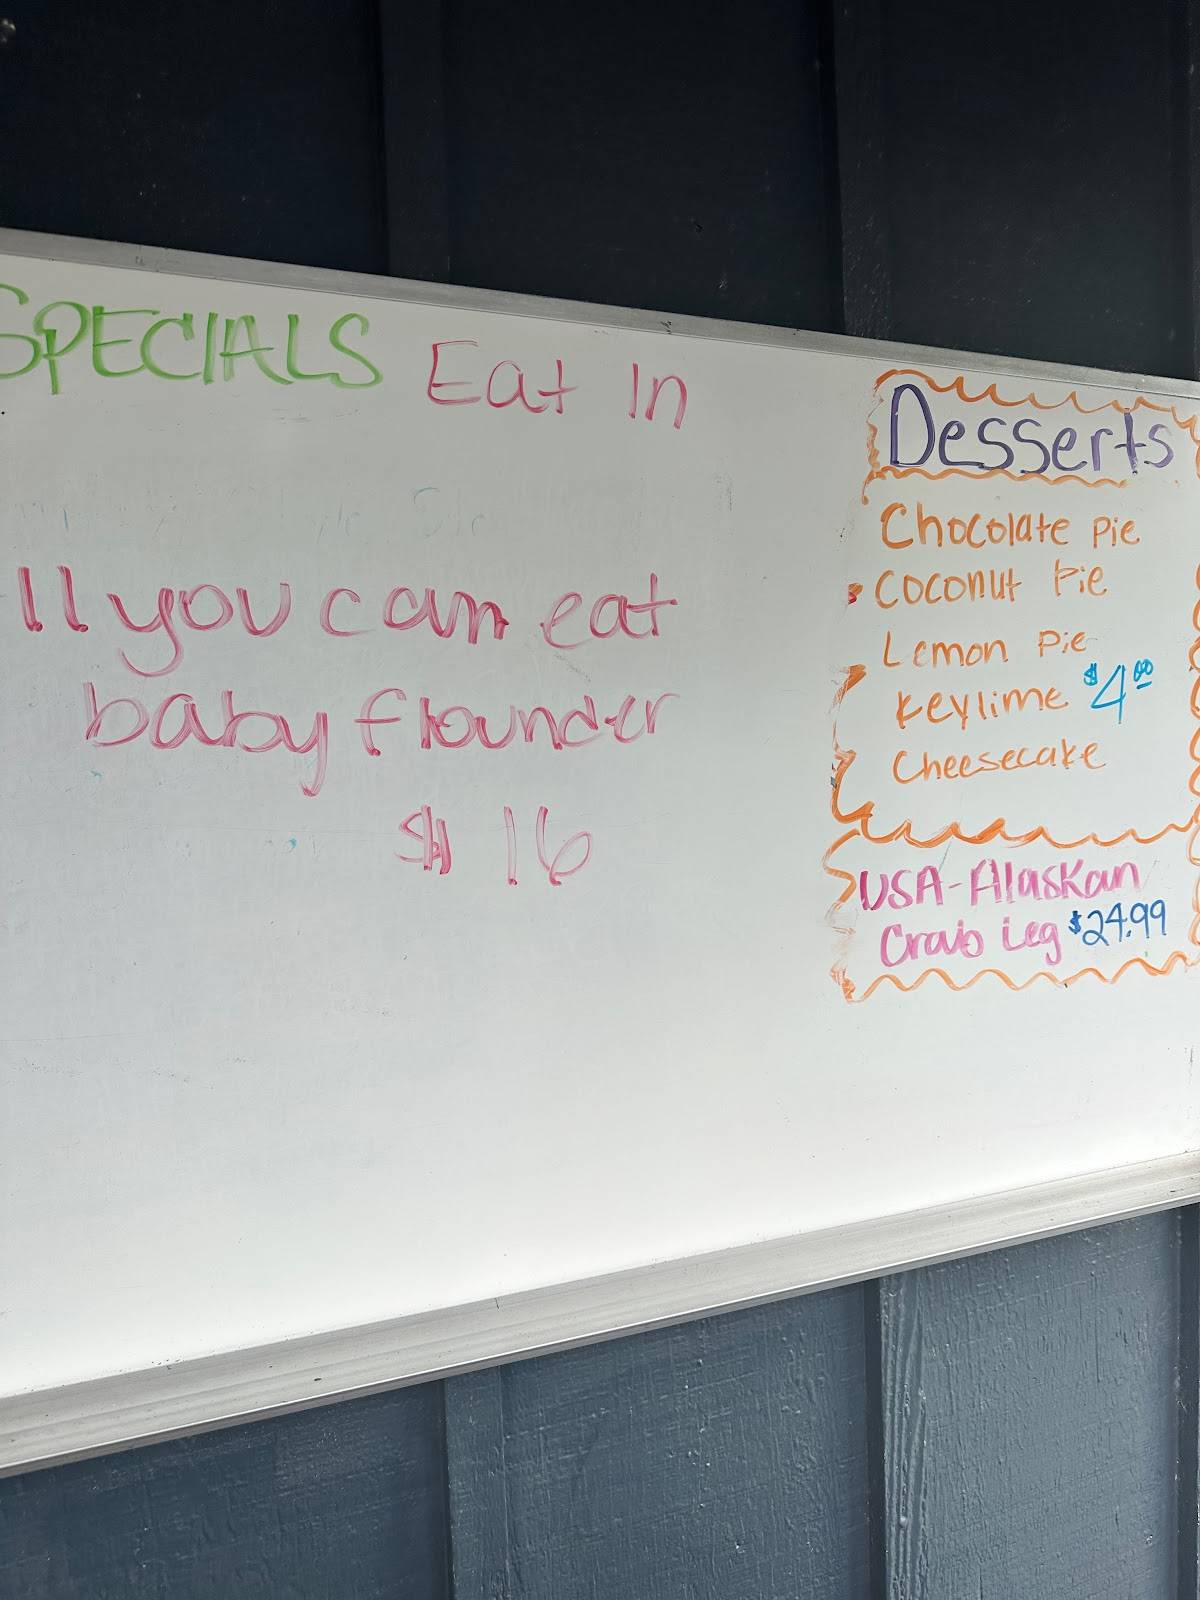 SPECIALS Eat In
ll you can eat
baby flounder
$16
Desserts
Chocolate Pie
Coconut Pie
Lemon Pie
Keylime $4.00
Cheesecake
USA-Alaskan
Crab Leg $24.99